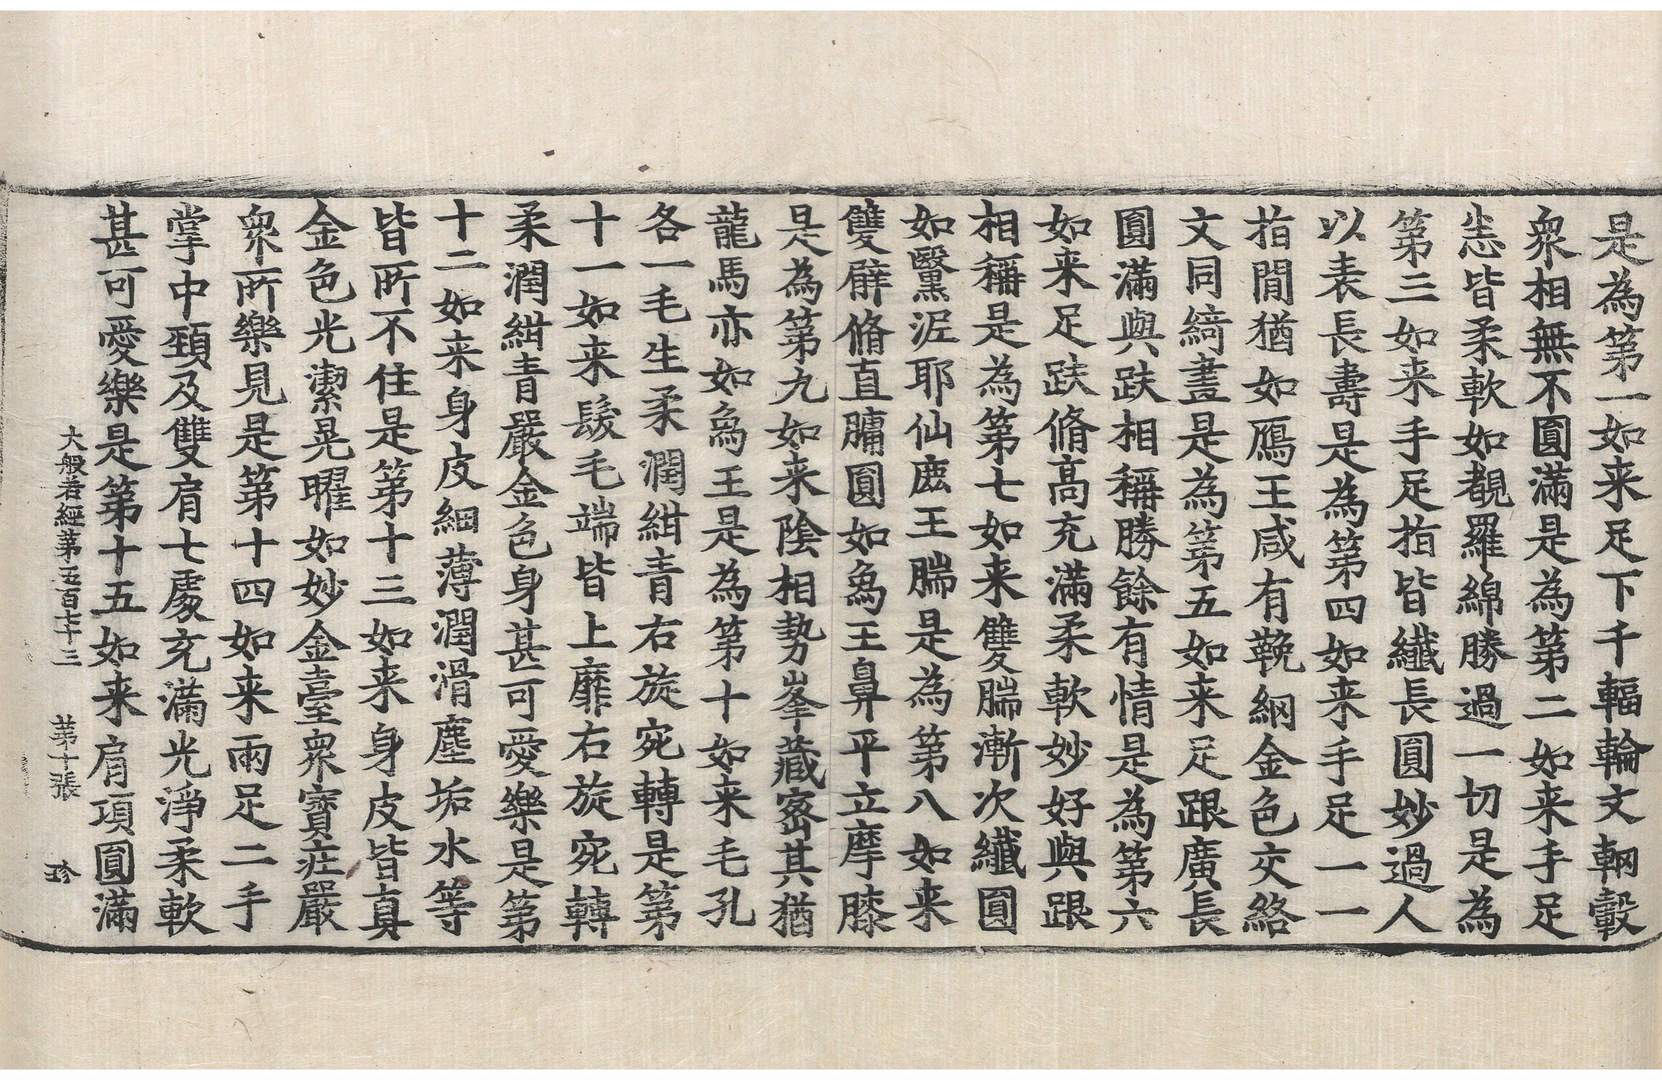 是為第一如来足下千輻輪文輞轂
衆相無不圓滿是為第二如来手足
悉皆柔軟如覩羅綿勝過一切是為
第三如来手足指皆纎長圓妙過人
以表長壽是為第四如来手足一一
指間猶如鴈王咸有鞔網金色交絡
文同綺畫是為第五如来足跟廣長
圓滿與趺相稱勝餘有情是為第六
如来足趺脩高充滿柔軟妙好與跟
相稱是為第七如来雙腨漸次纎圓
如瑿泥耶仙鹿王腨是為第八如来
雙臂脩直𦟛圓如象王鼻平立摩膝
是為第九如来陰相勢峯藏密其猶
龍馬亦如象王是為第十如来毛孔
各一毛生柔潤紺青右旋宛轉是第
十一如来髮毛端皆上靡右旋宛轉
柔潤紺青嚴金色身甚可愛樂是第
十二如来身皮細薄潤滑塵垢水等
皆所不住是第十三如来身皮皆真
金色光潔晃曜如妙金臺衆寶莊嚴
衆所樂見是第十四如来兩足二手
掌中頸及雙肩七處充滿光淨柔軟
甚可愛樂是第十五如来肩項圓滿
大般若經第五百七十三 第十張 珍